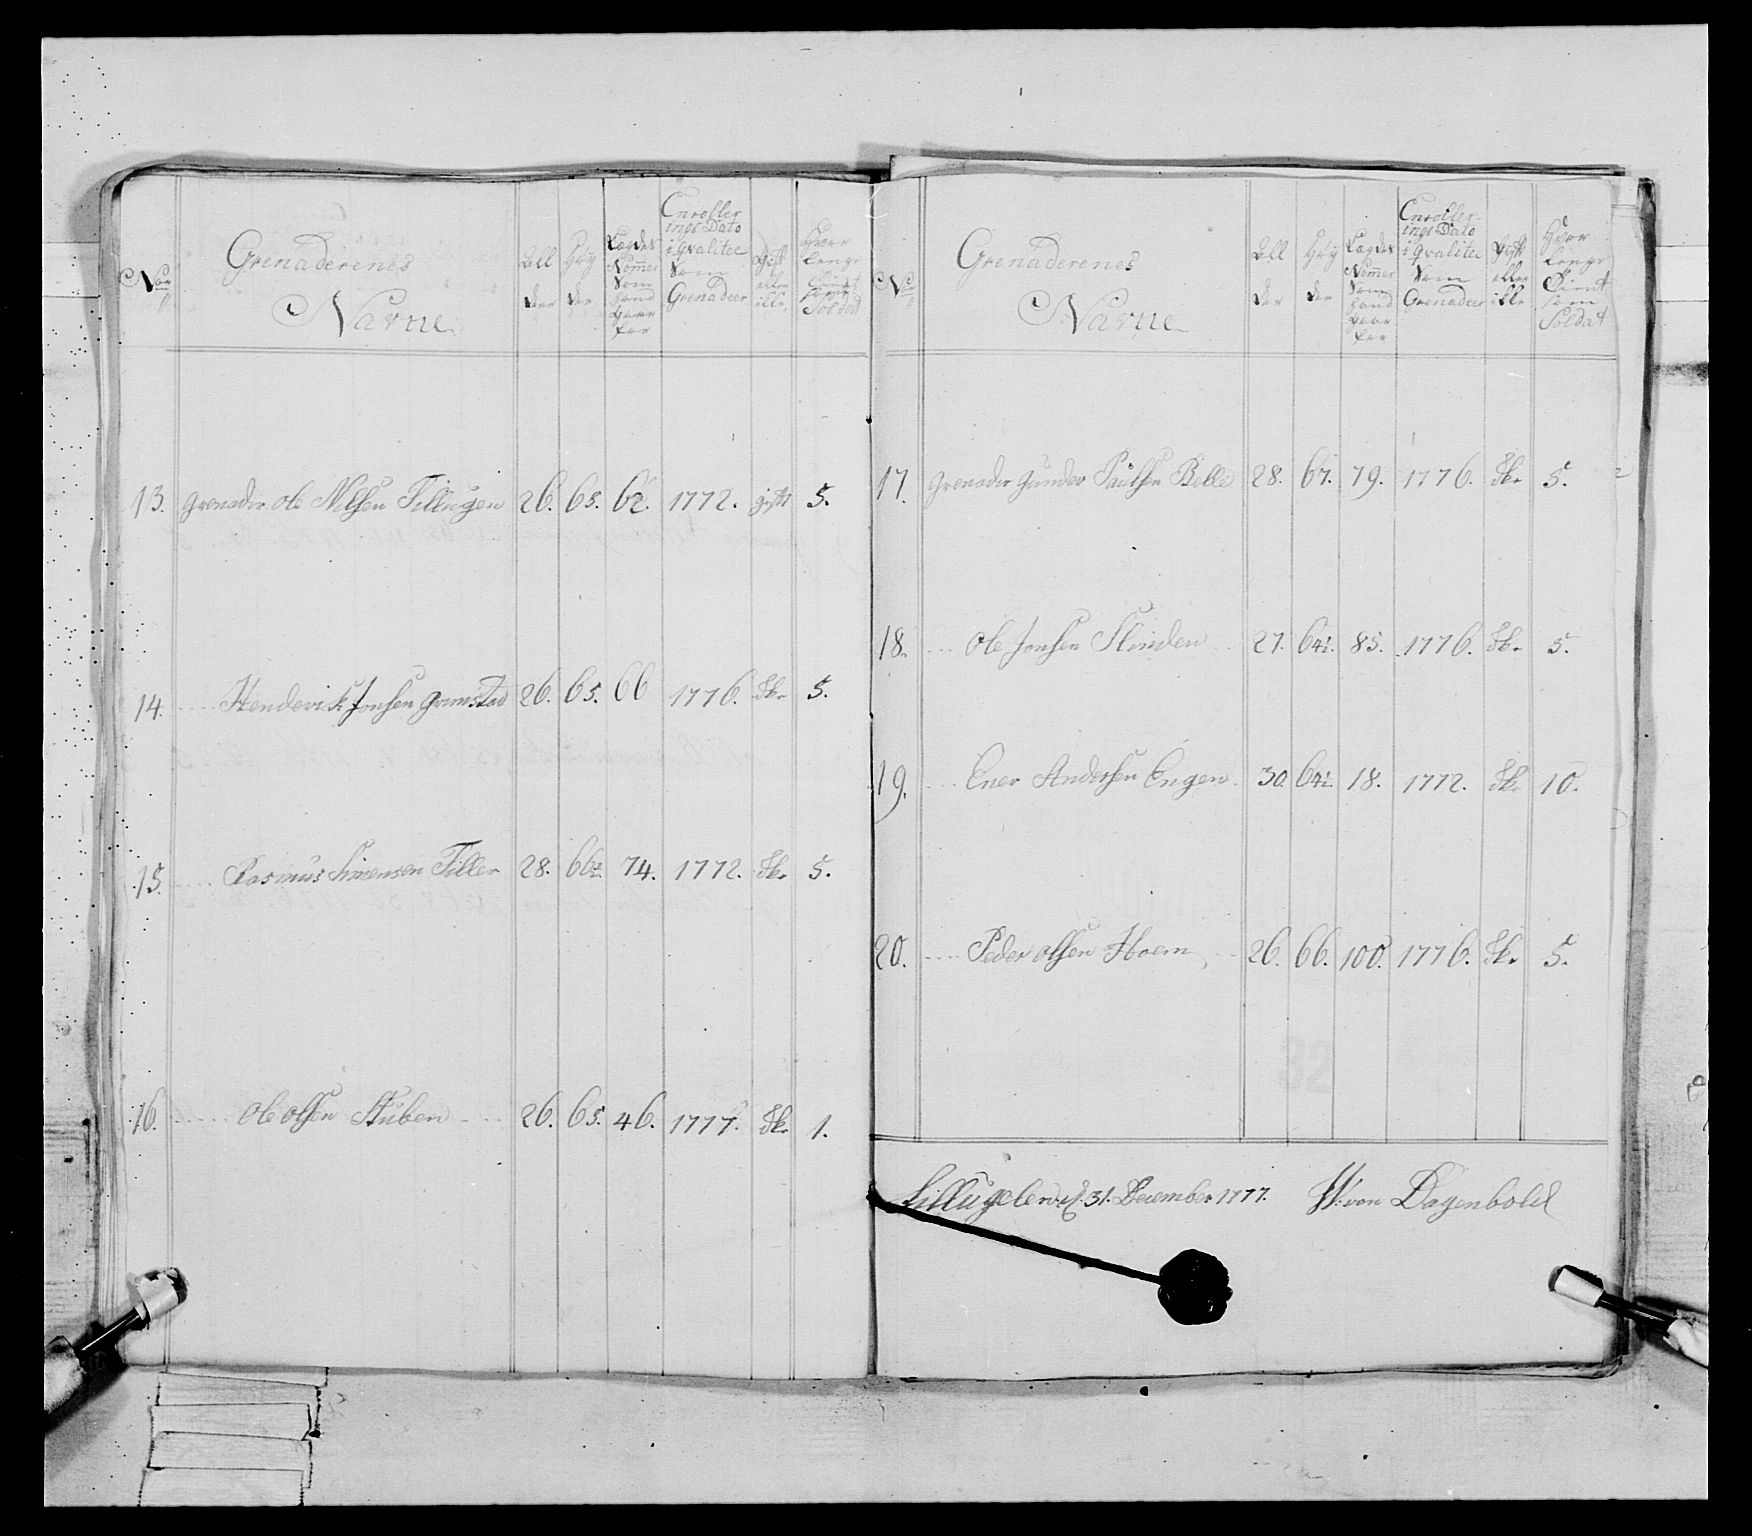 No:
Grenaderenes
Navne
All
der
Høy
de
Lægdes
Nommer
Som
hand
staar
for
Enroller
ings Dato
i qvalitee
Som
Grenadeer
Gift
eller
ikke
Hvor
lenge
tient
som
Soldat
13. Grenader Ole Nilsen Tillugen 26. 65. 62. 1772. gift 5.
14. Henderik Jonsen Grimstad 26. 65. 66 1776. Ikr 5.
15. Rasmus Simensen Tiller 28. 66½. 74. 1772. Ikr 5.
16. Ole Olsen Stuben 26. 65. 46. 1777. Ikr 1.
No:
Grenaderenes
Navne
All
der
Høy
de
Lægdes
Nommer
Som
hand
staar
for
Enroller
ings Dato
i qvalitee
Som
Grenadeer
Gift
eller
ikke
Hvor
lenge
tient
som
Soldat
17. Grenader Gunder Paulsen Belle 28. 67. 79. 1776. Ikr 5.
18. Ole Jonsen Slinden 27. 64½. 85. 1776. Ikr 5.
19. Ener Andersen Engen 30. 64½. 18. 1772. Ikr 10.
20. Peder Olsen Hoem 26. 66. 100. 1776. Ikr 5.
31. December 1777. W: von Dagenbold